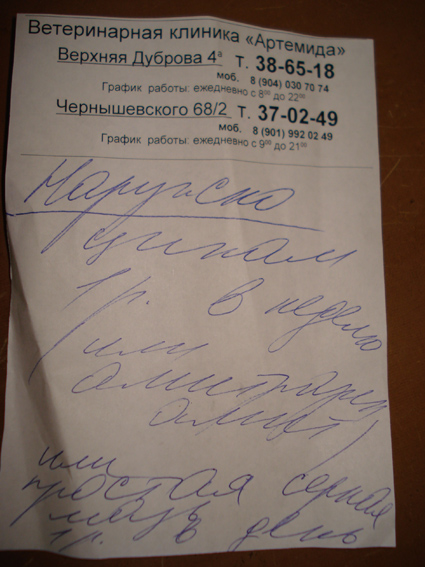 Ветеринарная клиника «Артемида»
Верхняя Дуброва 4а т. 38-65-18
моб. 8 (904) 030 70 74
График работы: ежедневно с 8⁰⁰ до 22⁰⁰
Чернышевского 68/2 т. 37-02-49
моб. 8 (901) 992 02 49
График работы: ежедневно с 9⁰⁰ до 21⁰⁰
Наружно
1 р. в неделю
(или
амитразин
амит)
или
простая серная
мазь в день
1р.